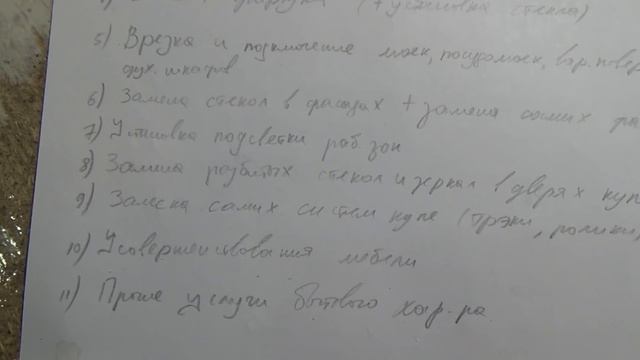 (+установка стекла)
5) Врезка и подключение моек, посудомоек, вар. повер
дух. шкафов
6) Замена стекол в фасадах + замена самих фа
7) Установка подсветки раб. зон
8) Замена разбитых стекол и зеркал в дверях купе
9) Замена самих систем купе (трэки, ролики,
10) Усовершенствования мебели
11) Прочие услуги бытового хар-ра